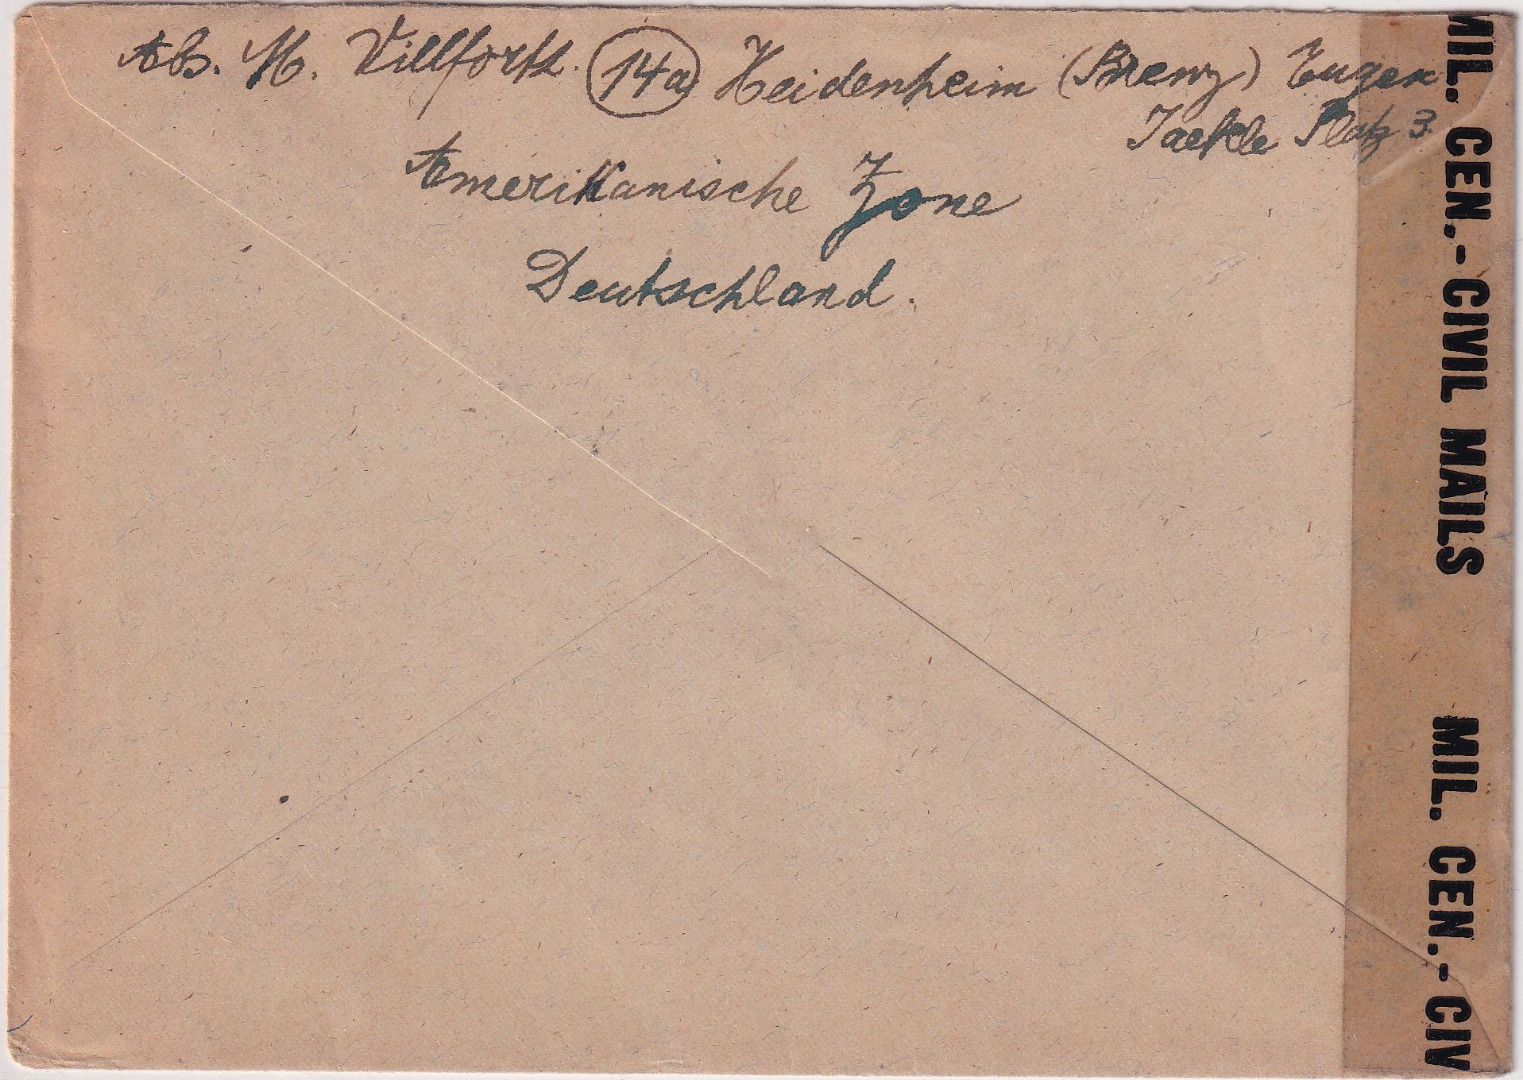 Abs. M. Villforth. (14a) Heidenheim (Brenz) Eugen
Jaekle Platz 3.
Amerikanische Zone
Deutschland.
MIL. CEN.-CIVIL MAILS MIL. CEN.-CIV